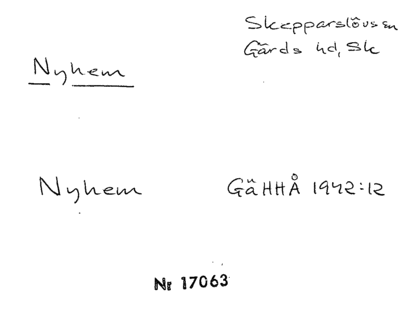 Nyhem
Skepparslövs sn
Gärds hd, Sk
Nyhem
GäHHÅ 1942:12
Nr 17063